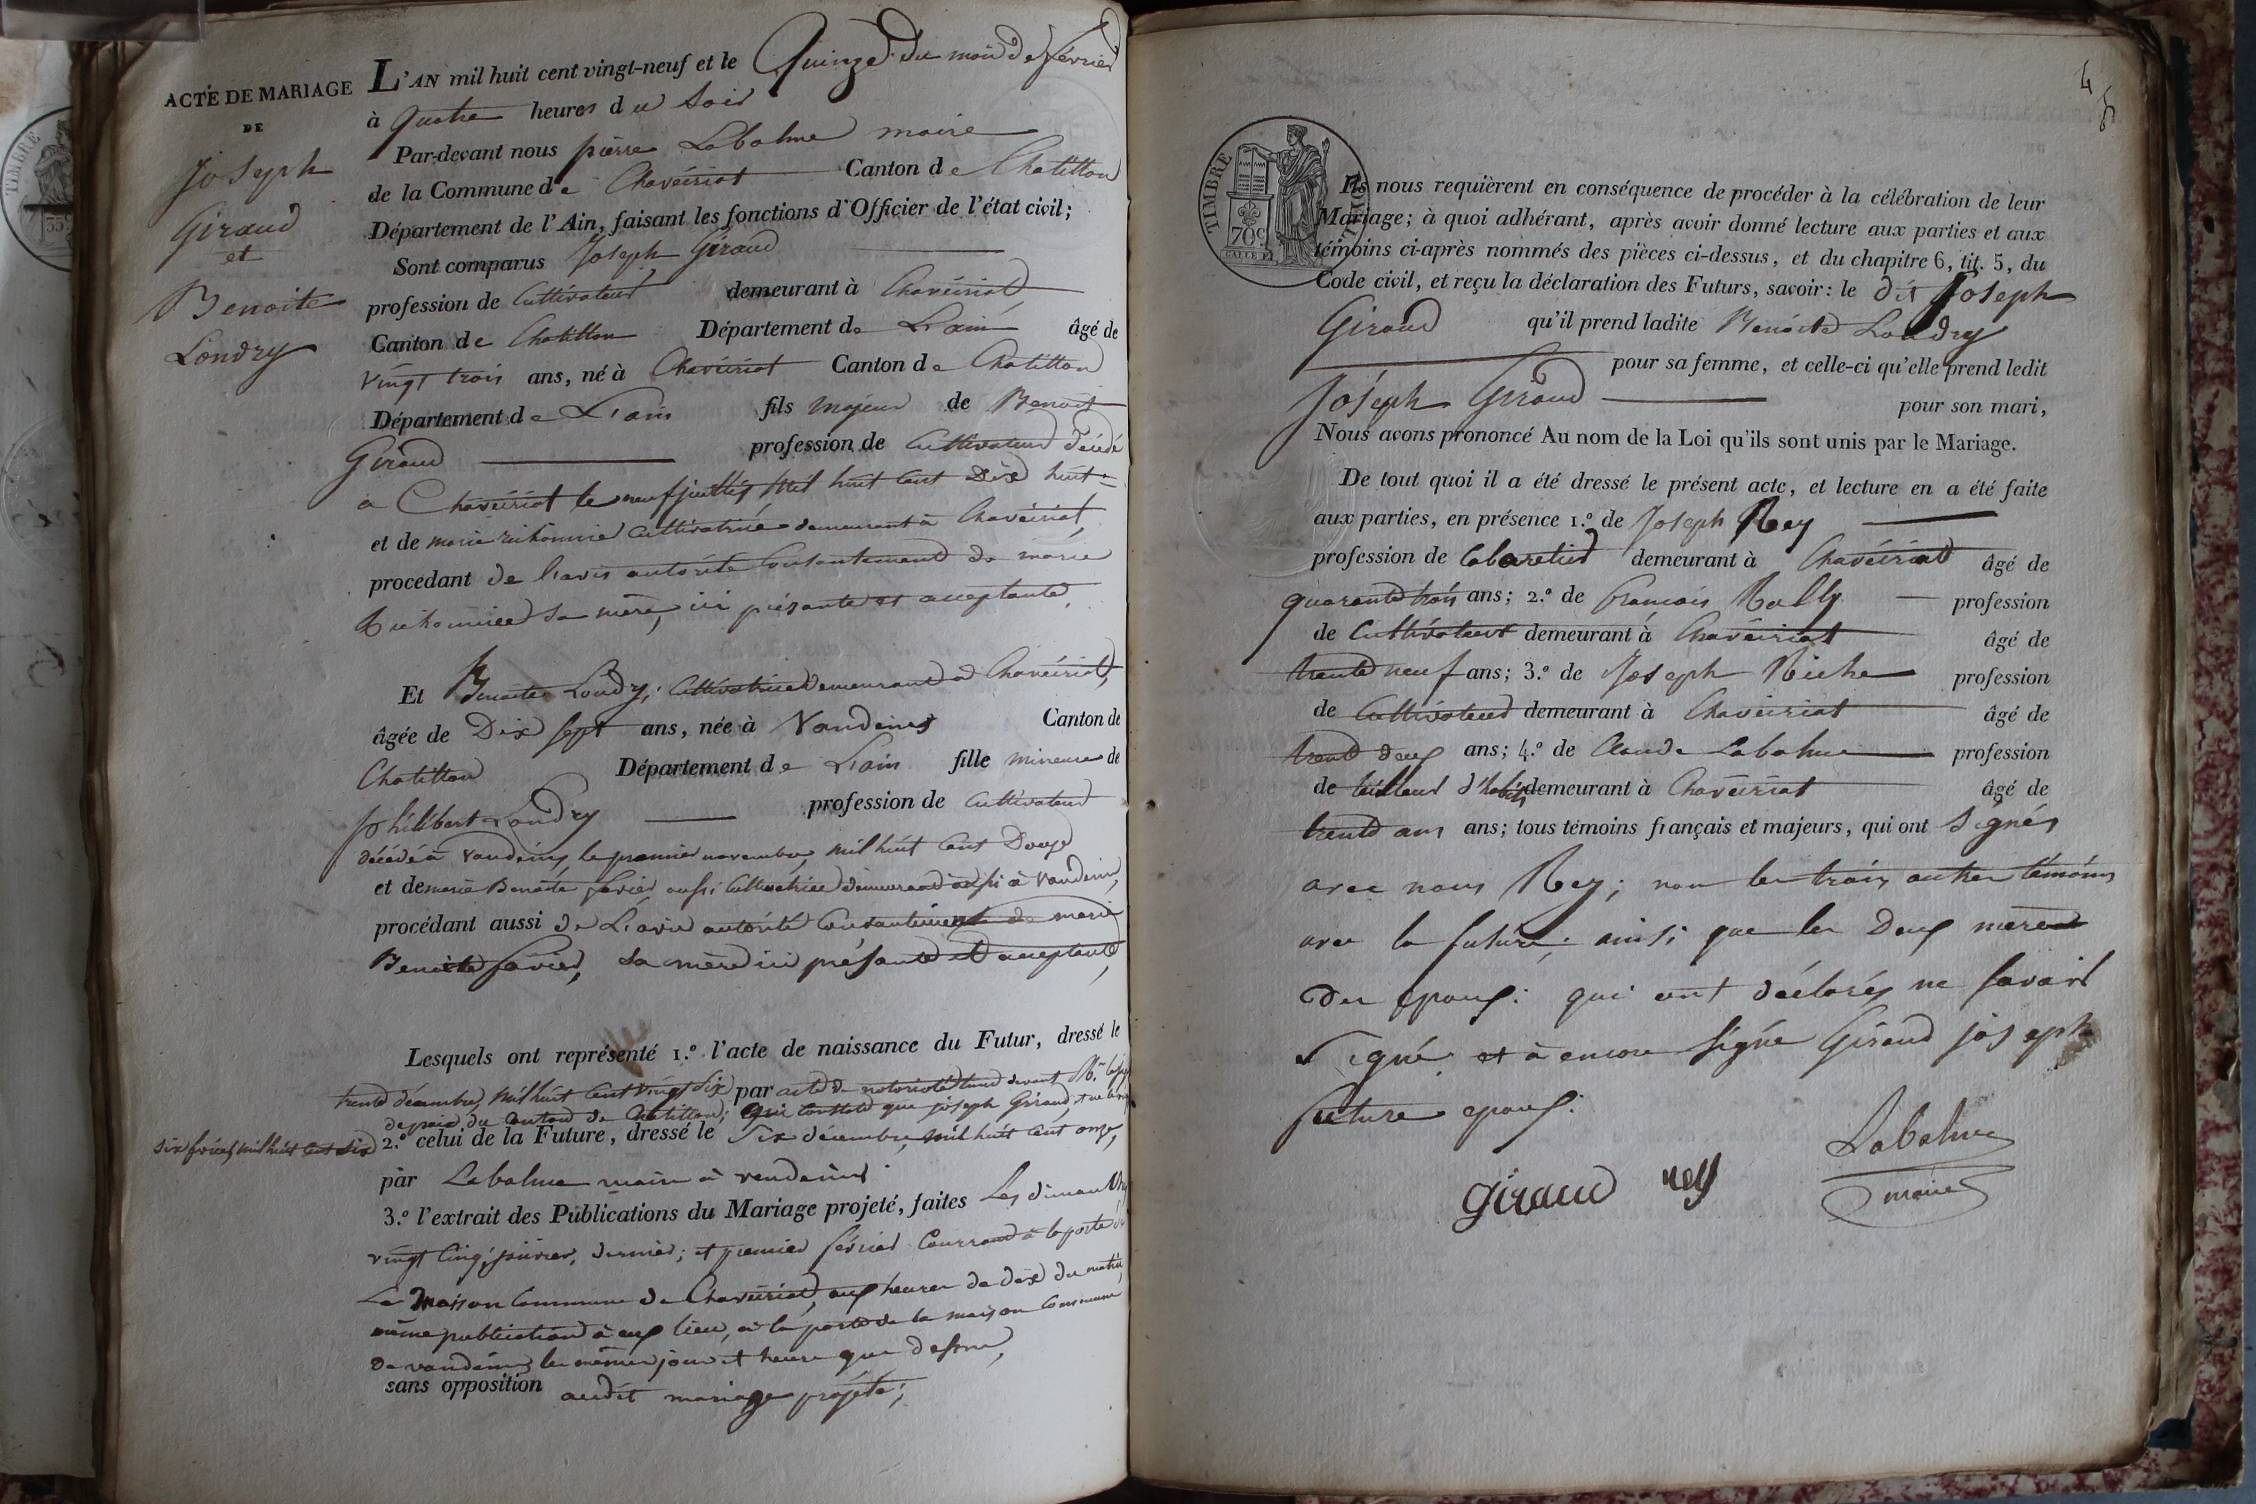 ACTE DE MARIAGE
DE
Joseph
Giraud
et
Benoite
Londry
L'AN mil huit cent vingt-neuf et le Quinze du mois de février
à quatre heures du Soir
Par-devant nous pierre Labalme maire
de la Commune de Chaveiriat Canton de Chatillon
Département de l'Ain, faisant les fonctions d'Officier de l'état civil;
Sont comparus Joseph Giraud
profession de Cultivateur demeurant à Chaveiriat
Canton de Chatillon Département de L'ain âgé de
vingt trois ans, né à Chaveiriat Canton de Chatillon
Département de L'ain fils majeur de Benoit
Giraud profession de Cultivateur décédé
a Chaveiriat le neuf juillet mil huit cent Dix huit
et de marie Cultivatrice demeurant à Chaveiriat
procédant de L'avis autorité Consentement de marie
sa mère, ici présente et acceptante,
Et Benoite Londry, Cultivatrice demeurant a Chaveiriat,
âgée de Dix sept ans, née à Vandeins Canton de
Chatillon Département de L'ain fille mineure de
philibert Londry profession de Cultivateur
décédé à Vandeins, le premier novembre, mil huit cent Douze
et de marie Benoite favier, aussi Cultivatrice demeurant aussi à Vandeins,
procédant aussi de L'avis autorité Consentement de marie
Benoite favier, sa mère ici présente et acceptante,
Lesquels ont représenté 1.º l'acte de naissance du Futur, dressé le
trente décembre, mil huit cent vingt six par acte de notoriété devant Mr le juge
de paix du Canton de Chatillon; qui Constate que joseph Giraud, est né le
six février mil huit cent six
2.º celui de la Future, dressé le Six décembre, mil huit cent onze,
par Labalme maire à vandeins
3.º l'extrait des Publications du Mariage projeté, faites Les dimanches
vingt Cinq janvier, dernier; et premier février Courrant à la porte de
La Maison Commune de Chaveiriat, aux heures de dix du matin,
même publication à eux lieu, à la porte de la maison Commune
de vandeins les mêmes jour et heure que dessus,
sans opposition audit mariage projeté;
4
5
TIMBRE ROYAL
70 C.
Ils nous requièrent en conséquence de procéder à la célébration de leur
Mariage; à quoi adhérant, après avoir donné lecture aux parties et aux
témoins ci-après nommés des pièces ci-dessus, et du chapitre 6, tit. 5, du
Code civil, et reçu la déclaration des Futurs, savoir: le dit Joseph
Giraud qu'il prend ladite Benoite Londry
pour sa femme, et celle-ci qu'elle prend ledit
Joseph Giraud pour son mari,
Nous avons prononcé Au nom de la Loi qu'ils sont unis par le Mariage.
De tout quoi il a été dressé le présent acte, et lecture en a été faite
aux parties, en présence 1.º de Joseph Rey
profession de Cabaretier demeurant à Chaveiriat âgé de
quarante trois ans; 2.º de francois Rolly profession
de Cultivateur demeurant à Chaveiriat âgé de
trente neuf ans; 3.º de Joseph Riche profession
de Cultivateur demeurant à Chaveiriat âgé de
trente deux ans; 4.º de Claude Labalme profession
de tailleur d'habits demeurant à Chaveiriat âgé de
trente ans ans; tous témoins français et majeurs, qui ont signés
avec nous Rey; non les trois autres témoins
avec la future; ainsi que les Deux mères
Des epoux: qui ont déclarés ne savoir
signé; et à encore signé Giraud joseph
future epoux:
giraud rey Labalme
maire